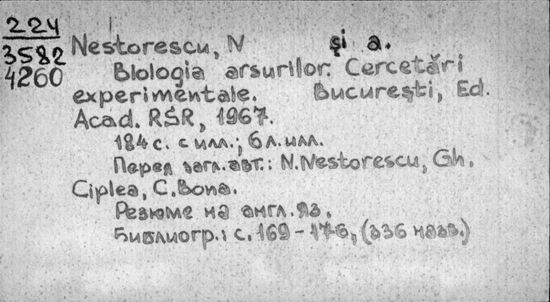 224
3582
4260
Nestorescu, N și a.
Biologia arsurilor. Cercetări
experimentale. București, Ed.
Acad. RSR, 1967.
184 с. с илл.; 6 л. илл.
Перед загл. авт.: N. Nestorescu, Gh.
Ciplea, C. Bona.
Резюме на англ. яз.
Библиогр.: с. 169-176, (336 назв.)